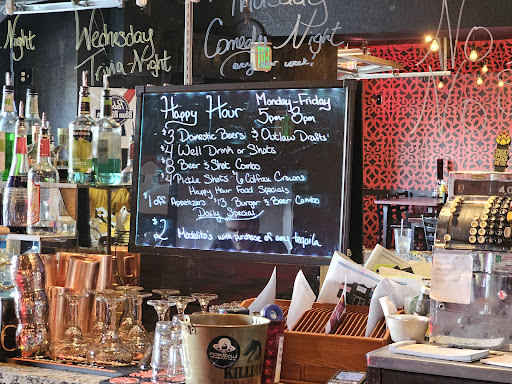 Night
Wednesday
Trivia Night
Thursday
Comedy Night
(every other week)
Happy Hour Monday-Friday
5pm-8pm
$3 Domestic Beers & Outlaw Drafts
$4 Well Drink or Shots
$8 Beer & Shot Combo
$4 Pickle Shots $6 Colfax Crowns
Happy Hour Food Specials
$1 off Appetizers $13 Burger & Beer Combo
Daily Special
$2 Modelito's with purchase of any tequila
KILLIAN